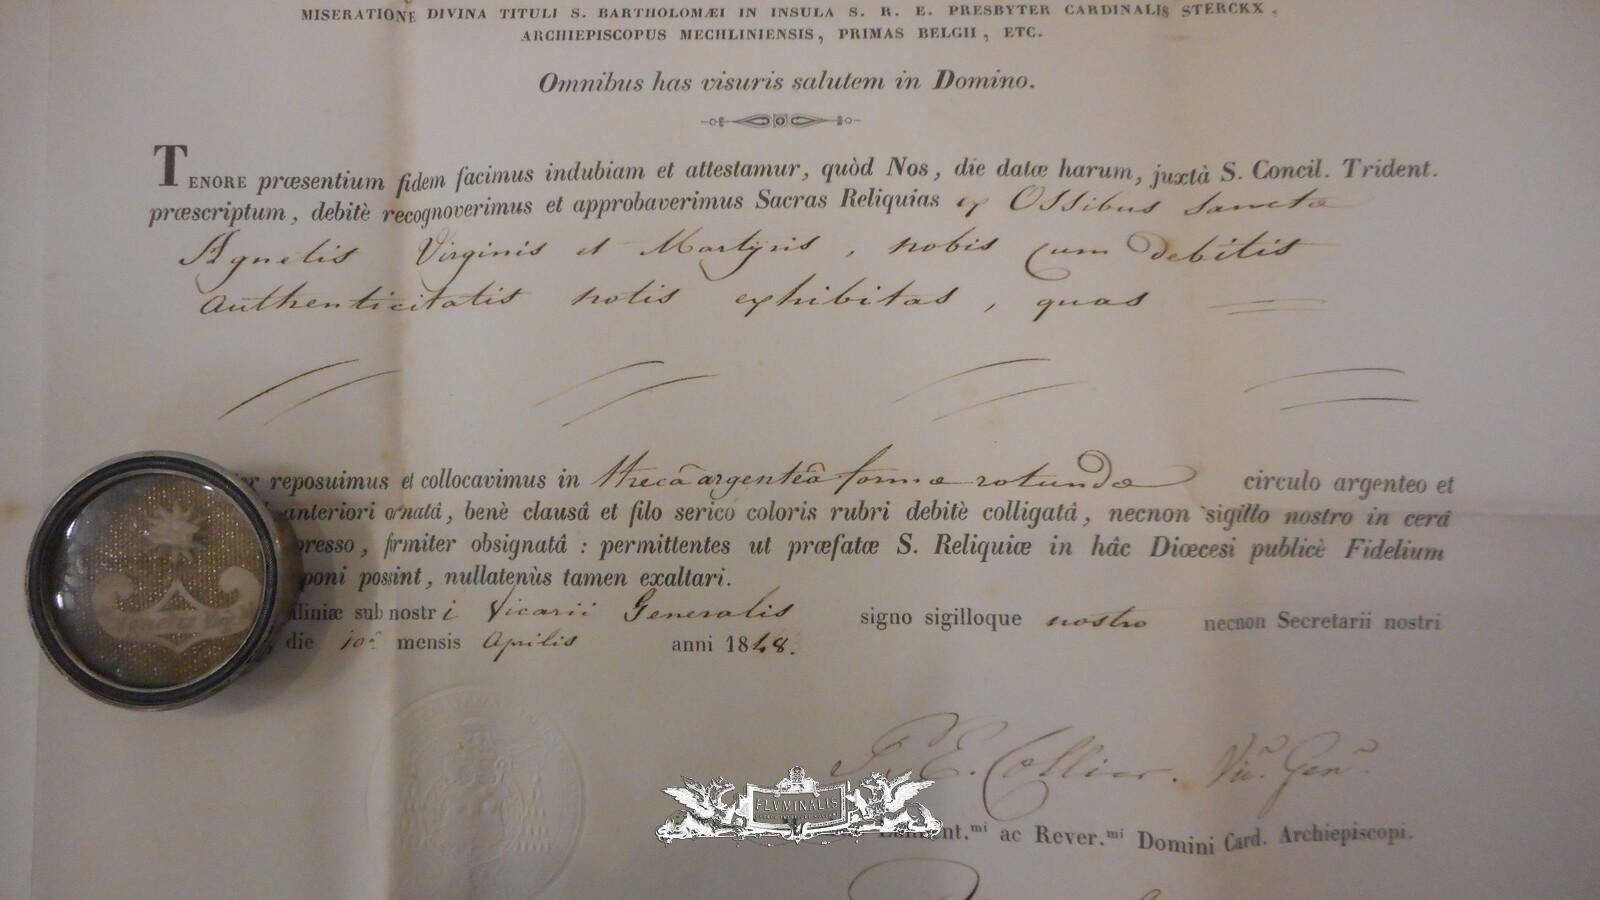 MISERATIONE DIVINA TITULI S. BARTHOLOMÆI IN INSULA S. R. E. PRESBYTER CARDINALIS STERCKX,
ARCHIEPISCOPUS MECHLINIENSIS, PRIMAS BELGII, ETC.
Omnibus has visuris salutem in Domino.
TENORE præsentium fidem facimus indubiam et attestamur, quòd Nos, die datæ harum, juxtà S. Concil. Trident.
præscriptum, debitè recognoverimus et approbaverimus Sacras Reliquias ex Ossibus Sanctæ
Agnetis Virginis et Martyris, nobis cum debitis
authenticitatis notis exhibitas, quas
reposuimus et collocavimus in thecâ argenteâ formæ rotundæ circulo argenteo et
anteriori ornatâ, benè clausâ et filo serico coloris rubri debitè colligatâ, necnon sigillo nostro in cerâ
presso, firmiter obsignatâ : permittentes ut præfatæ S. Reliquiæ in hâc Diœcesi publicè Fidelium
poni possint, nullatenùs tamen exaltari.
liniæ sub nostri Vicarii Generalis signo sigilloque nostro necnon Secretarii nostri
die 10â mensis Aprilis anni 1848.
Collier. Vic. Gen.
FLVMINALIS
nt.mi ac Rever.mi Domini Card. Archiepiscopi.